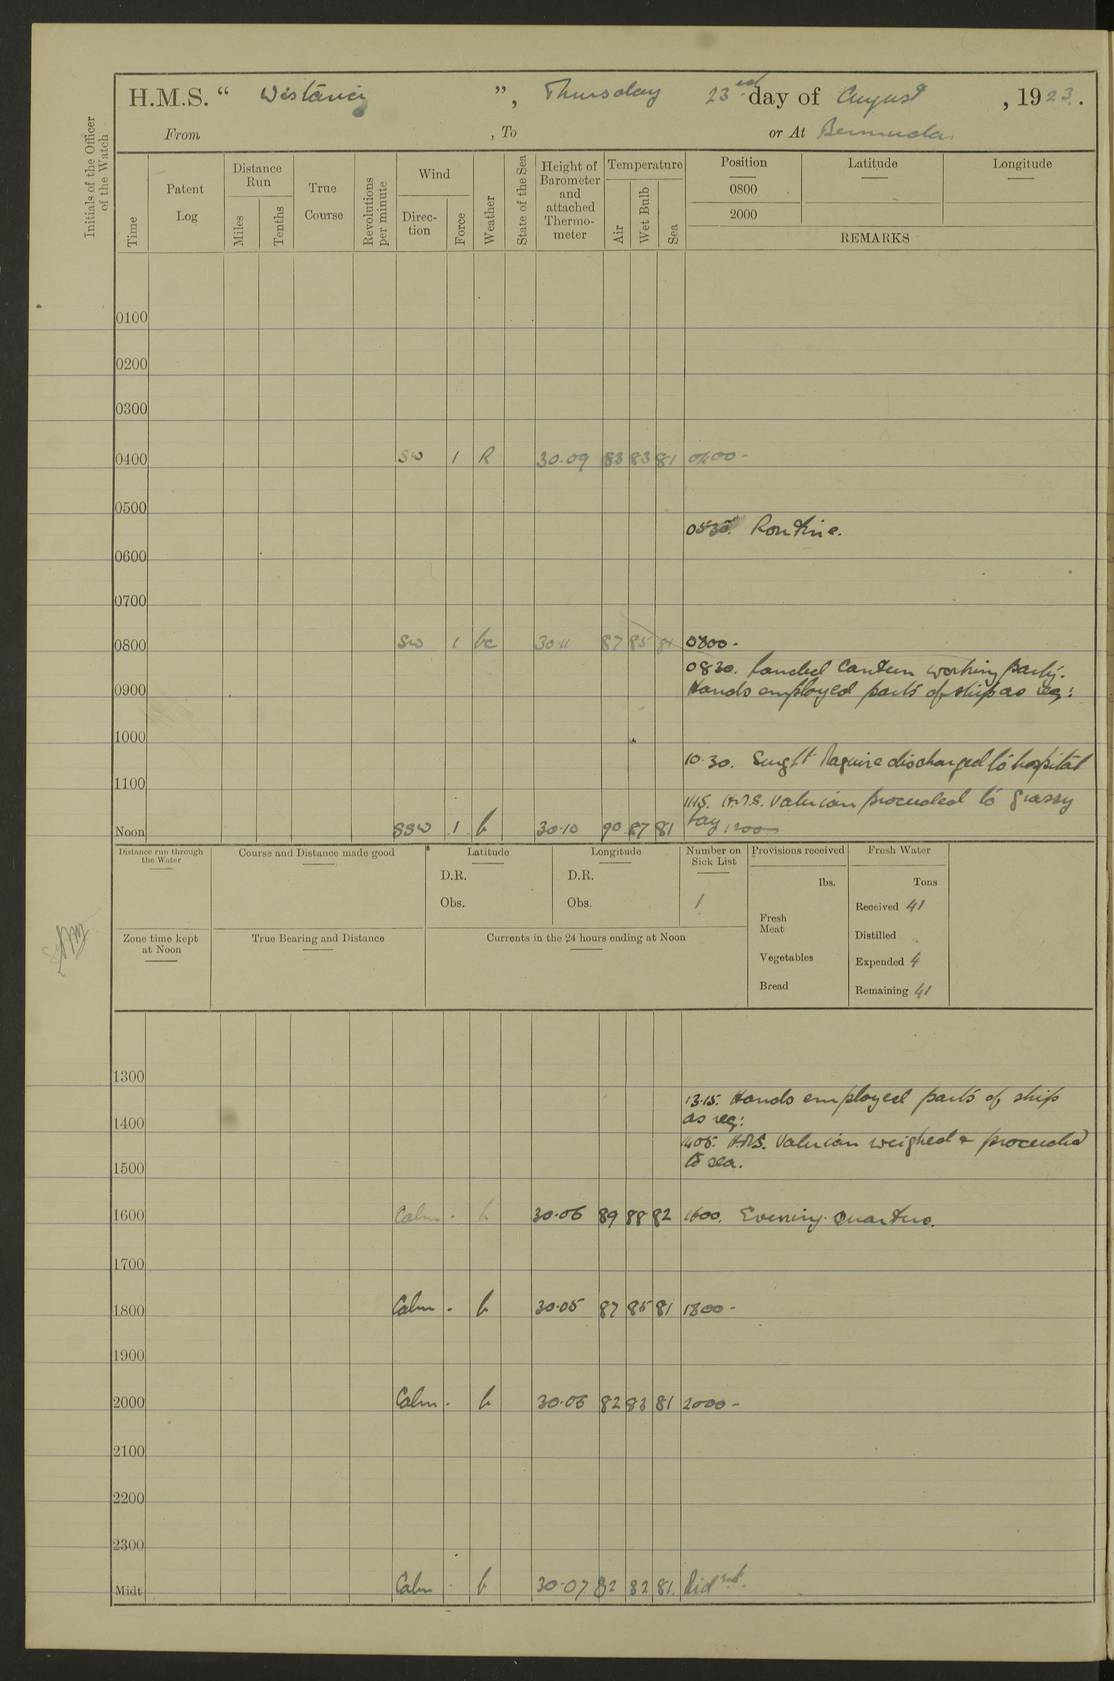 H.M.S. “ Wistaria ”, Thursday 23rd day of August, 1923.
From , To or At Bermuda.
Initials of the Officer of the Watch
Time
Patent Log
Distance Run
Miles
Tenths
True Course
Revolutions per minute
Wind
Direc-tion
Force
Weather
State of the Sea
Height of Barometer and attached Thermo-meter
Temperature
Air
Wet Bulb
Sea
Position Latitude Longitude
0800
2000
REMARKS
0100
0200
0300
0400 SW 1 R 30.09 83 83 81 0400 -
0500
0530. Routine.
0600
0700
0800 SW 1 bc 30.11 87 85 81 0800 -
0830. Landed Canteen working party.
0900 Hands employed parts of ship as req:
1000
10.30. Surg Lt Maguire discharged to hospital
1100
1115. H.M.S. Valerian proceeded to Grassy
Noon SSW 1 b 30.10 90 87 81 bay 1200
Distance run through the Water
Course and Distance made good
Latitude
D.R.
Obs.
Longitude
D.R.
Obs.
Number on Sick List
1
Provisions received
lbs.
Fresh Meat
Vegetables
Bread
Fresh Water
Tons
Received 41
Distilled
Expended 4
Remaining 41
Zone time kept at Noon
True Bearing and Distance
Currents in the 24 hours ending at Noon
1300
13.15. Hands employed parts of ship
1400 as req:
1405. H.M.S. Valerian weighed & proceeded
1500 to sea.
1600 Calm - b 30.06 89 88 82 1600. Evening Quarters.
1700
1800 Calm - b 30.05 87 85 81 1800 -
1900
2000 Calm - b 30.06 82 83 81 2000 -
2100
2200
2300
Midt Calm - b 30.07 82 82 81